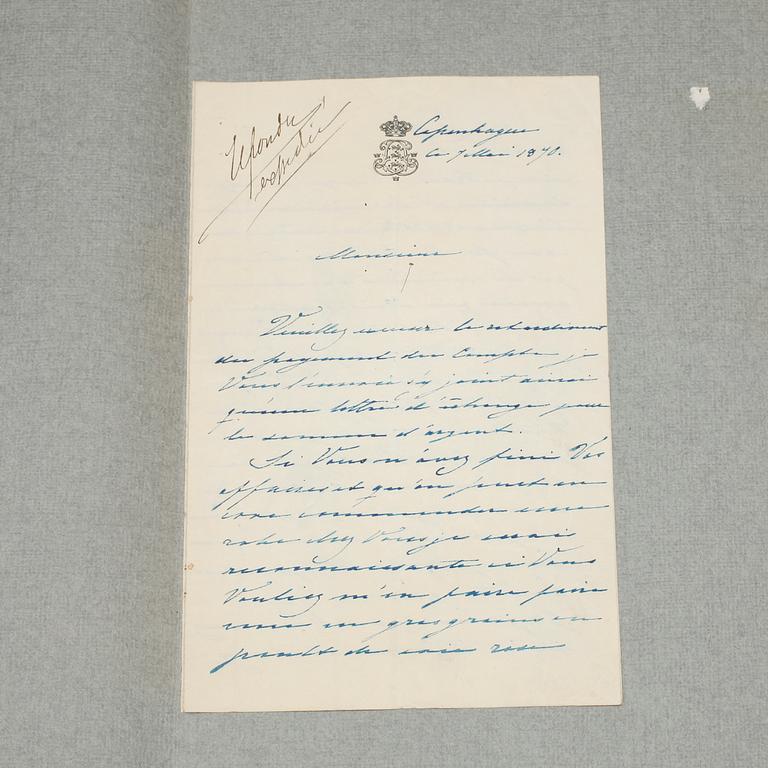 Répondu
expédié
Copenhague
le 7 Mai 1870.
Monsieur
Veuillez excuser le retardement
du payement du Compte je
Vous l'envoie ci joint ainsi
qu'une lettre d'échange pour
la somme d'argent.
Si Vous n'avez fini Vos
affaires et qu'on peut en
core commander une
robe chez Vous je serais
reconnaissante si Vous
Vouliez m'en faire faire
une en gros grains ou
poult de soie rose